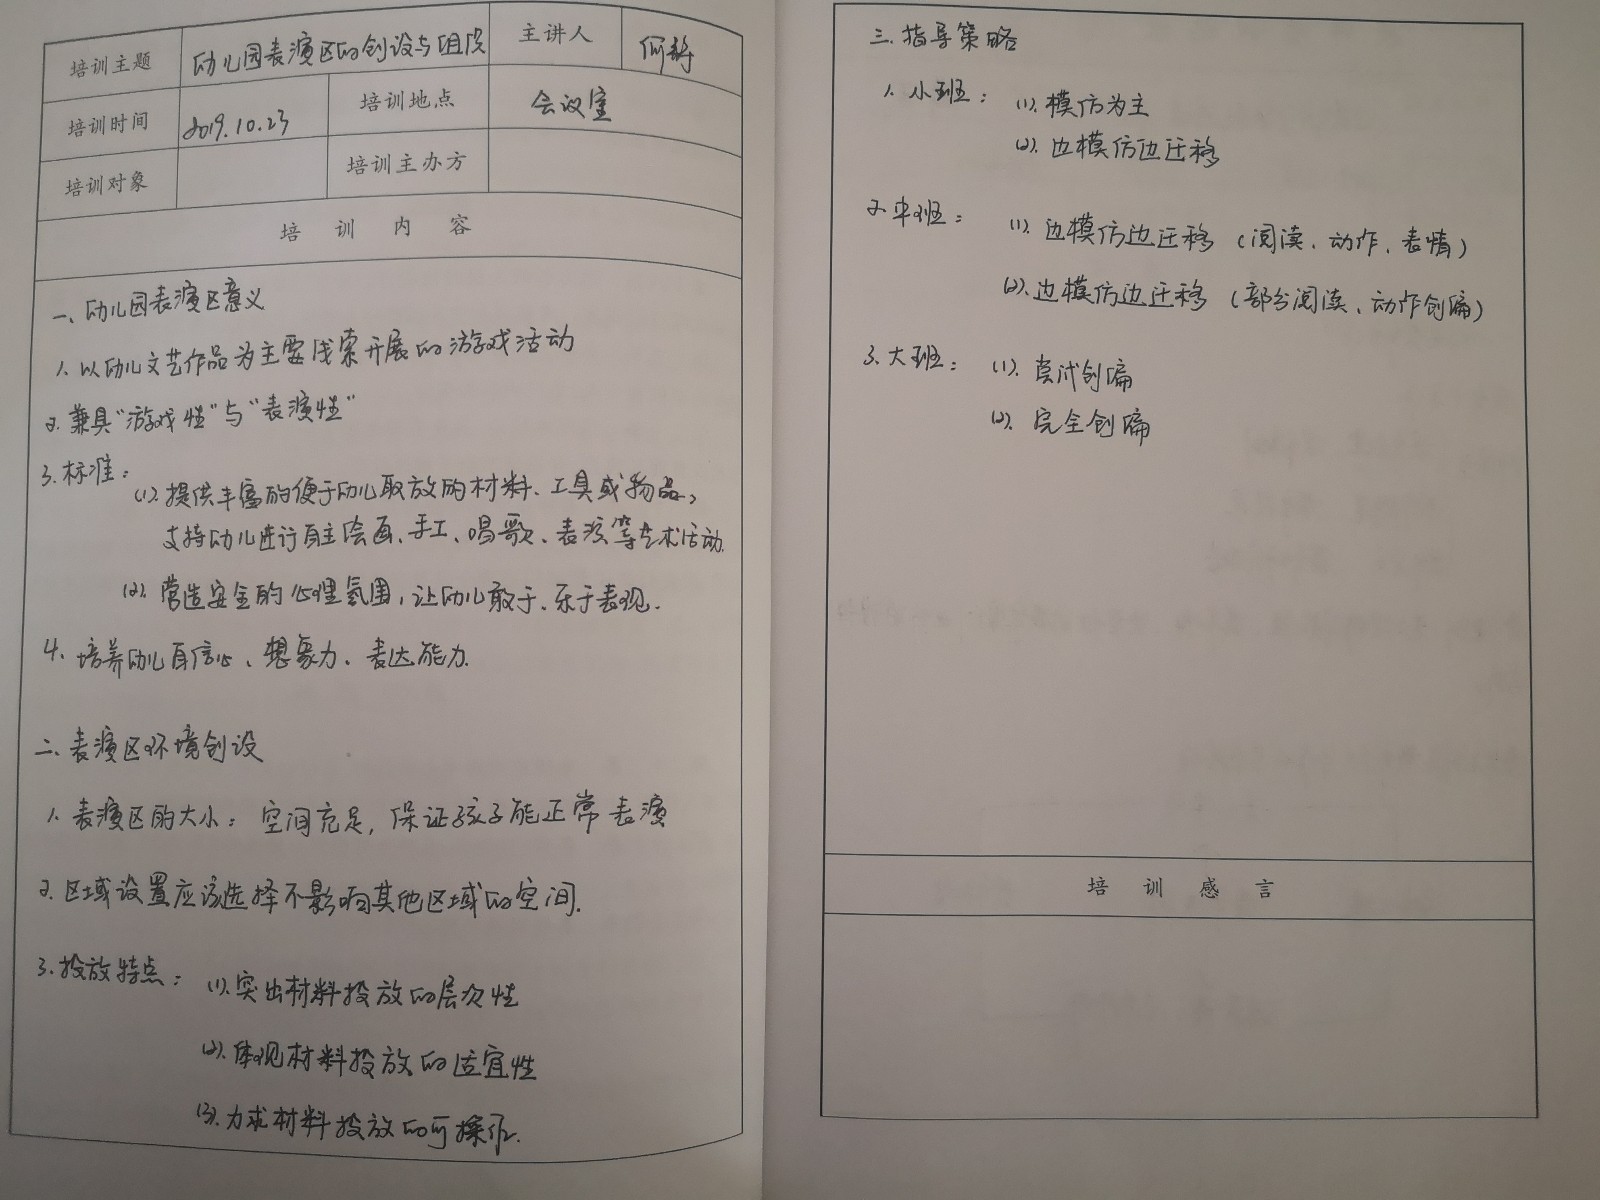 培训主题 幼儿园表演区的创设与组织 主讲人 何静
培训时间 2019.10.23 培训地点 会议室
培训对象 培训主办方
培训内容
一、幼儿园表演区意义
1. 以幼儿文艺作品为主要线索开展的游戏活动
2. 兼具“游戏性”与“表演性”
3. 标准：
(1). 提供丰富的便于幼儿取放的材料、工具或物品,
支持幼儿进行自主绘画、手工、唱歌、表演等艺术活动.
(2). 营造安全的心理氛围, 让幼儿敢于、乐于表现.
4. 培养幼儿自信心、想象力、表达能力.
二、表演区环境创设
1. 表演区的大小：空间充足, 保证孩子能正常表演
2. 区域设置应该选择不影响其他区域的空间.
3. 投放特点：(1). 突出材料投放的层次性
(2). 体现材料投放的适宜性
(3). 力求材料投放的可操作.
三. 指导策略
1. 小班：(1). 模仿为主
(2). 边模仿边迁移
2. 中班：(1). 边模仿边迁移（阅读、动作、表情）
(2). 边模仿边迁移（部分阅读、动作创编）
3. 大班：(1). 尝试创编
(2). 完全创编
培训感言